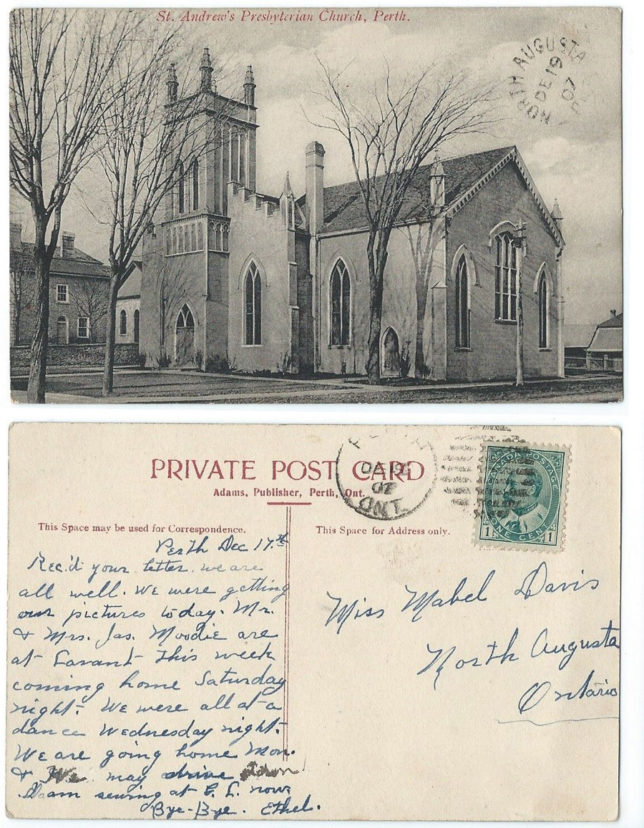 St. Andrew's Presbyterian Church, Perth.
NORTH AUGUSTA
DE 19
07
PRIVATE POST CARD
Adams, Publisher, Perth, Ont.
This Space may be used for Correspondence.
This Space for Address only.
ONT.
CANADA POSTAGE
1 ONE CENT 1
Perth Dec 17th
Rec.'d your letter. we are
all well. We were getting
our pictures to day. Mr.
& Mrs. Jas. Moodie are
at Lavant this week
coming home Saturday
night. We were all at a
dance Wednesday night.
We are going home Mon.
& We may drive down
I am sewing at E. L. now
Bye-Bye. Ethel.
Miss Mabel Davis
North Augusta
Ontario